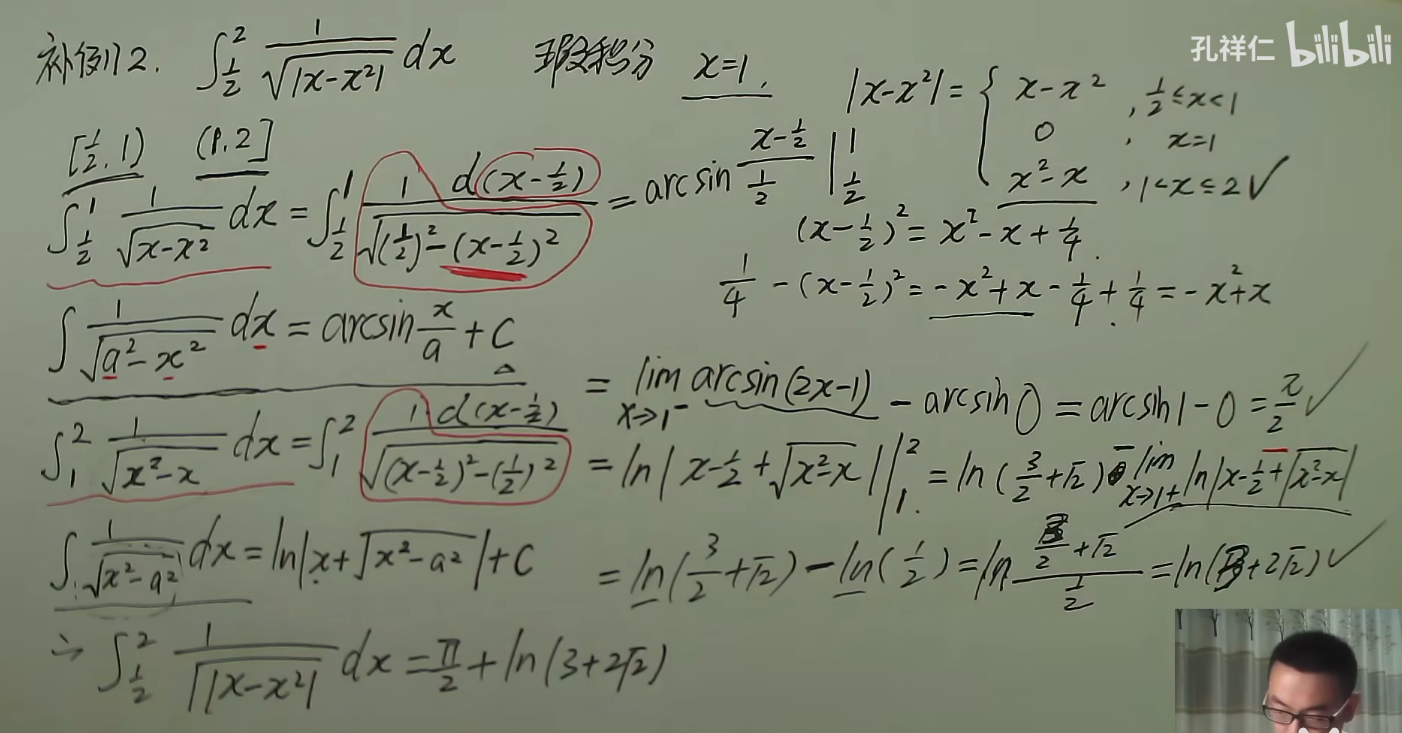 补例2. ∫_{1/2}^{2} 1/√|x-x²| dx 瑕积分 x=1.
孔祥仁 bilibili
|x-x²| = { x-x², 1/2≤x<1
0, x=1
x²-x, 1<x≤2 ✓
[1/2, 1) (1, 2]
∫_{1/2}^{1} 1/√(x-x²) dx = ∫_{1/2}^{1} 1/√((1/2)²-(x-1/2)²) d(x-1/2) = arcsin (x-1/2)/(1/2) |_{1/2}^{1}
(x-1/2)² = x²-x+1/4.
1/4-(x-1/2)² = -x²+x-1/4+1/4 = -x²+x
∫ 1/√(a²-x²) dx = arcsin x/a + C
= lim_{x→1⁻} arcsin(2x-1) - arcsin0 = arcsin1-0 = π/2 ✓
∫_{1}^{2} 1/√(x²-x) dx = ∫_{1}^{2} 1/√((x-1/2)²-(1/2)²) d(x-1/2) = ln|x-1/2+√(x²-x)| |_{1}^{2} = ln(3/2+√2) - lim_{x→1+} ln|x-1/2+√(x²-x)|
∫ 1/√(x²-a²) dx = ln|x+√(x²-a²)|+C
= ln(3/2+√2) - ln(1/2) = ln (3/2+√2)/(1/2) = ln(3+2√2) ✓
∴ ∫_{1/2}^{2} 1/√|x-x²| dx = π/2 + ln(3+2√2)